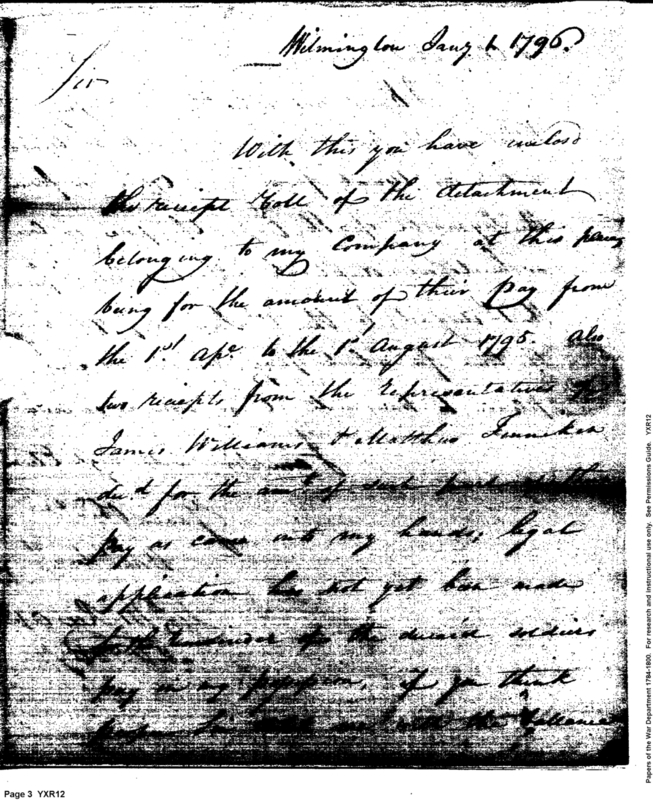 Wilmington Jany 1 1796.
Sir
With this you have inclosd
the receipt Roll of the detachment
belonging to my Company at this
being for the amount of their pay from
the 1st Apl. to the 1st August 1795. also
two receipts from the representatives of
James Williams & Matthew Finniken
decd for the amt of such
pay as came into my hands; legal
application has not yet been made
for the remainder of the deceasd soldiers
pay in my possession, if you think
me with the
Page 3 YXR12
Papers of the War Department 1784-1800. For research and instructional use only. See Permissions Guide. YXR12